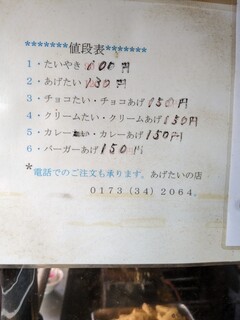 *******値段表*******
1・たいやき 100円
2・あげたい 130円
3・チョコたい・チョコあげ 150円
4・クリームたい・クリームあげ 150円
5・カレー・カレーあげ 150円
6・バーガーあげ 150円
*電話でのご注文も承ります。あげたいの店
0173(34)2064.